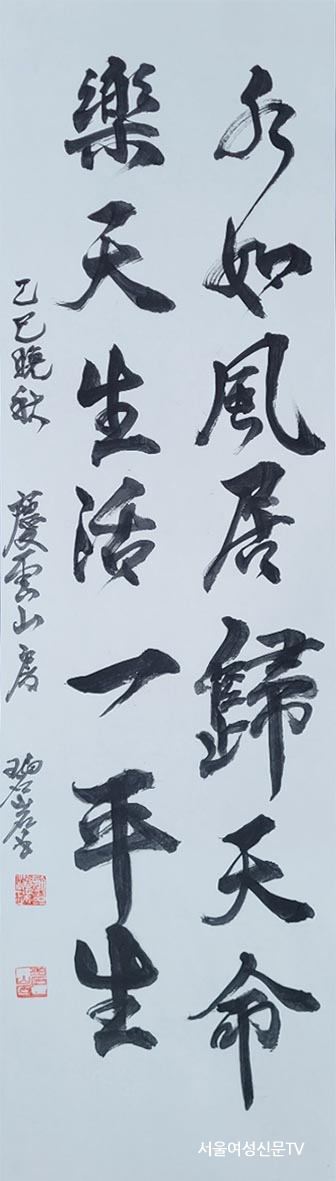 水如風居歸天命
樂天生活一平生
乙巳晩秋 慶雲山房 碧
서울여성신문TV